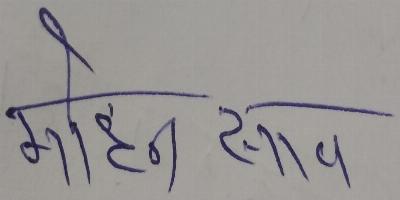 मोहन साव